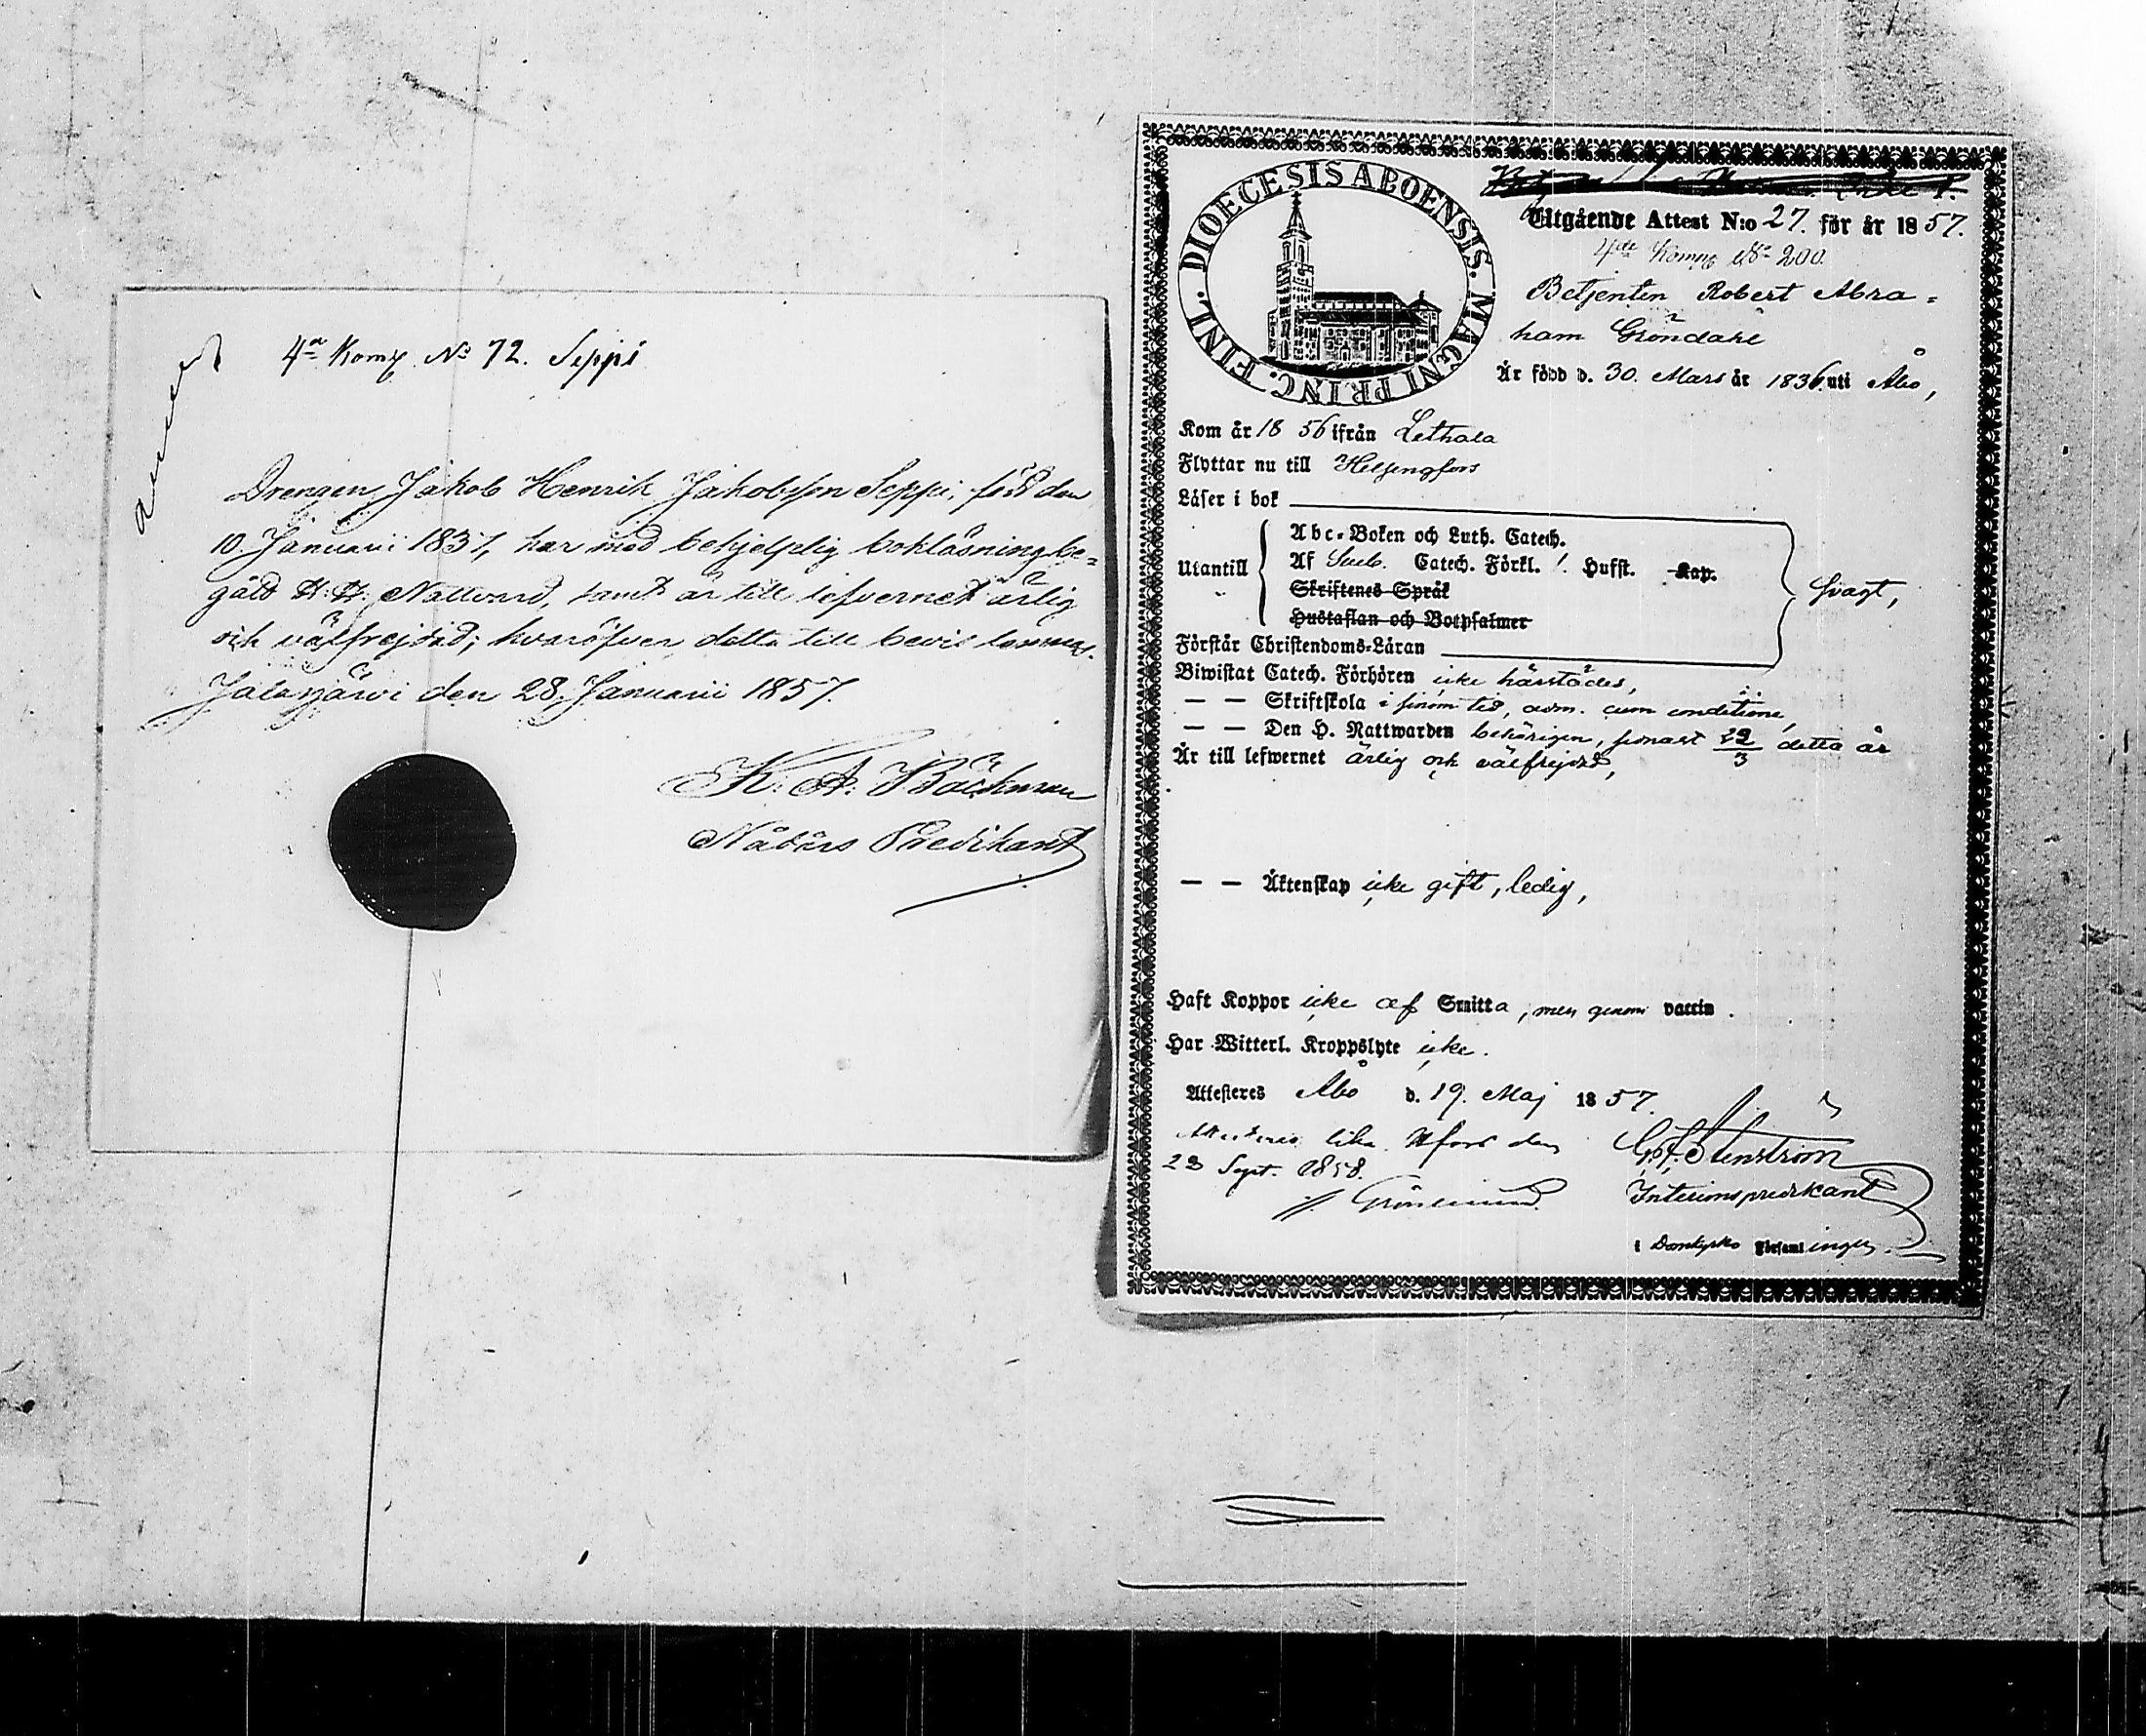 4de Komp. No 72. Seppi
Drengen Jakob Henrik Jakobsson Seppi, född den
10 Januarii 1837, har med behjelplig bokläsning be-
gått H. H. Nattvard, samt är till lefvernet ärlig
och välfrejdad; hvaröfver detta till bevis lemnas.
Jalasjärvi den 28 Januarii 1857.
K. A. Bäckman
Nådårs Predikant
DIOECESIS ABOENSIS. MAGNI PRINC. FINL.
Utgående Attest N:o 27. för år 1857.
4de Komp No 200.
Betjenten Robert Abra-
ham Gröndahl
Är född d. 30. Mars år 1836 uti Åbo,
Kom år 1856 ifrån Lethala
Flyttar nu till Helsingfors
Läser i bok
Utantill
Abc-Boken och Luth. Catech.
Af Sveb. Catech. Förkl. 1. Hufst. Kap.
Skriftenes Språk
Hustaflan och Botpsalmer
svagt,
Förstår Christendoms-Läran
Biwistat Catech. Förhören icke härstädes,
— — Skriftskola i sinom tid, adm. cum conditione,
— — Den H. Nattwarden behörigen, senast 29/3 detta år
Är till lefwernet ärlig och välfrejdad,
— — Äktenskap icke gift, ledig,
Haft Koppor icke af Smitta, men genom vaccin.
Har Witterl. Kroppslyte icke.
Attesteres Åbo d. 19. Maj 1857.
lika Hfors den
23 Sept. 1858.
Grönlund.
G. F. Stenström
Interimspredikant
i Domkyrko Församlingen.